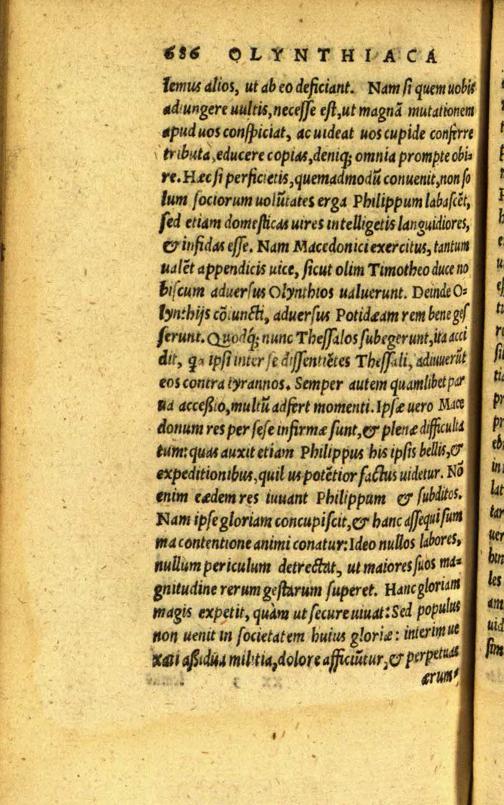 686 OLYNTHIACA
lemus alios, ut ab eo deficiant. Nam si quem uobis
adiungere uultis, necesse est, ut magnã mutationem
apud uos conspiciat, ac uideat uos cupide conferre
tributa, educere copias, deniq; omnia prompte obi-
re. Hæc si perficietis, quemadmodũ conuenit, non so
lum sociorum uolũtates erga Philippum labascẽt,
sed etiam domesticas uires intelligetis languidiores,
& infidas esse. Nam Macedonici exercitus, tantum
ualẽt appendicis uice, sicut olim Timotheo duce no
biscum aduersus Olynthios ualuerunt. Deinde O-
lynthijs cõiuncti, aduersus Potidæam rem bene ges
serunt. Quodq; nunc Thessalos subegerunt, ita acci
dit, qa ipsi inter se dissentiẽtes Thessali, adiuuerũt
eos contra tyrannos. Semper autem quamlibet par
ua accessio, multũ adfert momenti. Ipsæ uero Mace
donum res per sese infirmæ sunt, & plenæ difficulta
tum: quas auxit etiam Philippus his ipsis bellis, &
expeditionibus, quil us potẽtior factus uidetur. Nõ
enim eædem res iuuant Philippum & subditos.
Nam ipse gloriam concupiscit, & hanc assequi sum
ma contentione animi conatur: Ideo nullos labores,
nullum periculum detrectat, ut maiores suos ma-
gnitudine rerum gestarum superet. Hanc gloriam
magis expetit, quàm ut secure uiuat: Sed populus
non uenit in societatem huius gloriæ: interim ue
xati aßidua militia, dolore afficiũtur, & perpetuas
ærum-